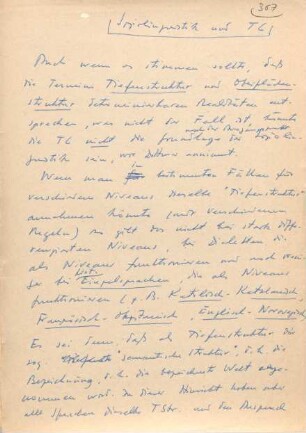 387
Soziolinguistik und TG
Auch wenn es stimmen sollte, daß
die Termini Tiefenstruktur und Oberflächen-
struktur determinierbaren Realitäten ent-
sprechen, was nicht der Fall ist, könnte
die TG nicht die Grundlage der Soziolin-
guistik sein, wie Dittmar annimmt.
Wenn man in bestimmten Fällen für
verschiedene Niveaus dieselbe "Tiefenstruktur"
annehmen könnte (mit verschiedenen
Regeln) so gilt das nicht bei stark diffe-
renzierten Niveaus, bei Dialekten die
als Niveaus funktionieren und noch weni-
ger bei Einzelsprachen, die als Niveaus
funktionieren (z.B. Kastilisch - Katalanisch
Französisch - Okzitanisch, Englisch - Norwegisch
Es sei denn, daß als Tiefenstruktur die
sog. "semantische Struktur", d.h. die
Bezeichnung, d.h. die bezeichnete Welt ange-
nommen wird. In dieser Hinsicht haben aber
alle Sprachen dieselbe TStr. und der Anspruch